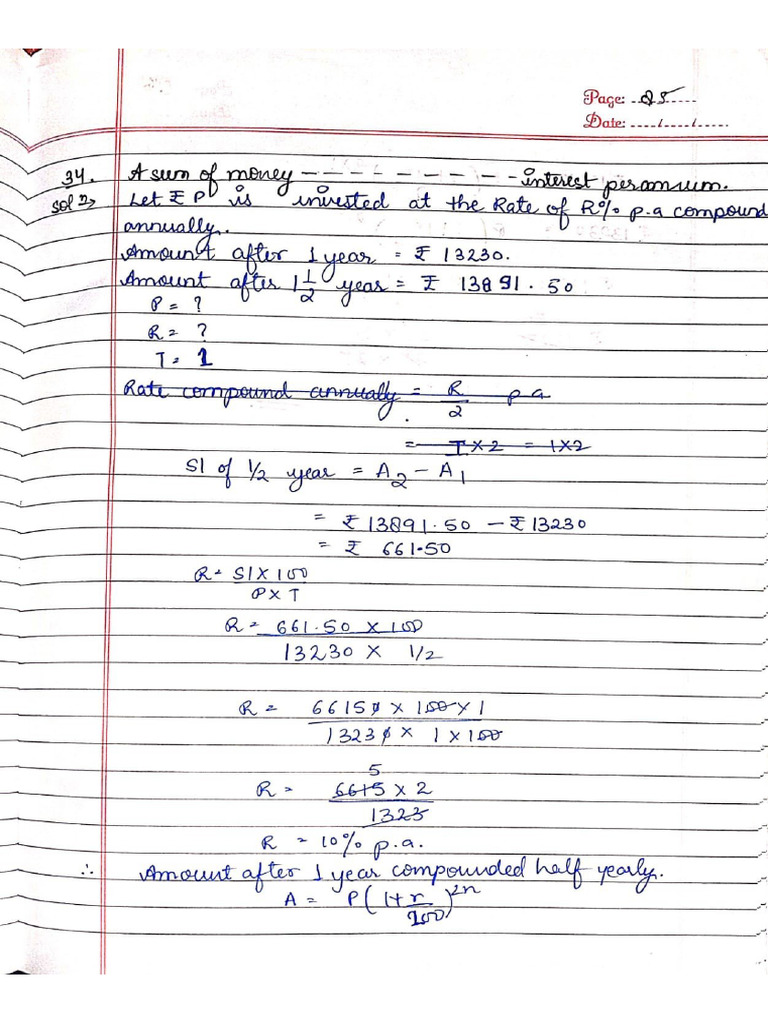 Page: 25
Date: / /
34. A sum of money - - - - - - - - - interest per annum.
Sol 2→ Let ₹ P is invested at the Rate of R% p.a compound
annually.
Amount after 1 year = ₹ 13230.
Amount after 1 1/2 year = ₹ 13891.50
P = ?
R = ?
T = 1
Rate compound annually = R/2 p a
= T×2 = 1×2
SI of 1/2 year = A2 - A1
= ₹13891.50 - ₹13230
= ₹ 661.50
R = SI × 100 / P × T
R = 661.50 × 100 / 13230 × 1/2
R = 66150 × 100 × 1 / 13230 × 1 × 100
5
R = 6615 × 2 / 1323
R = 10% p.a.
∴ Amount after 1 year compounded half yearly.
A = P(1+r/100)^2n